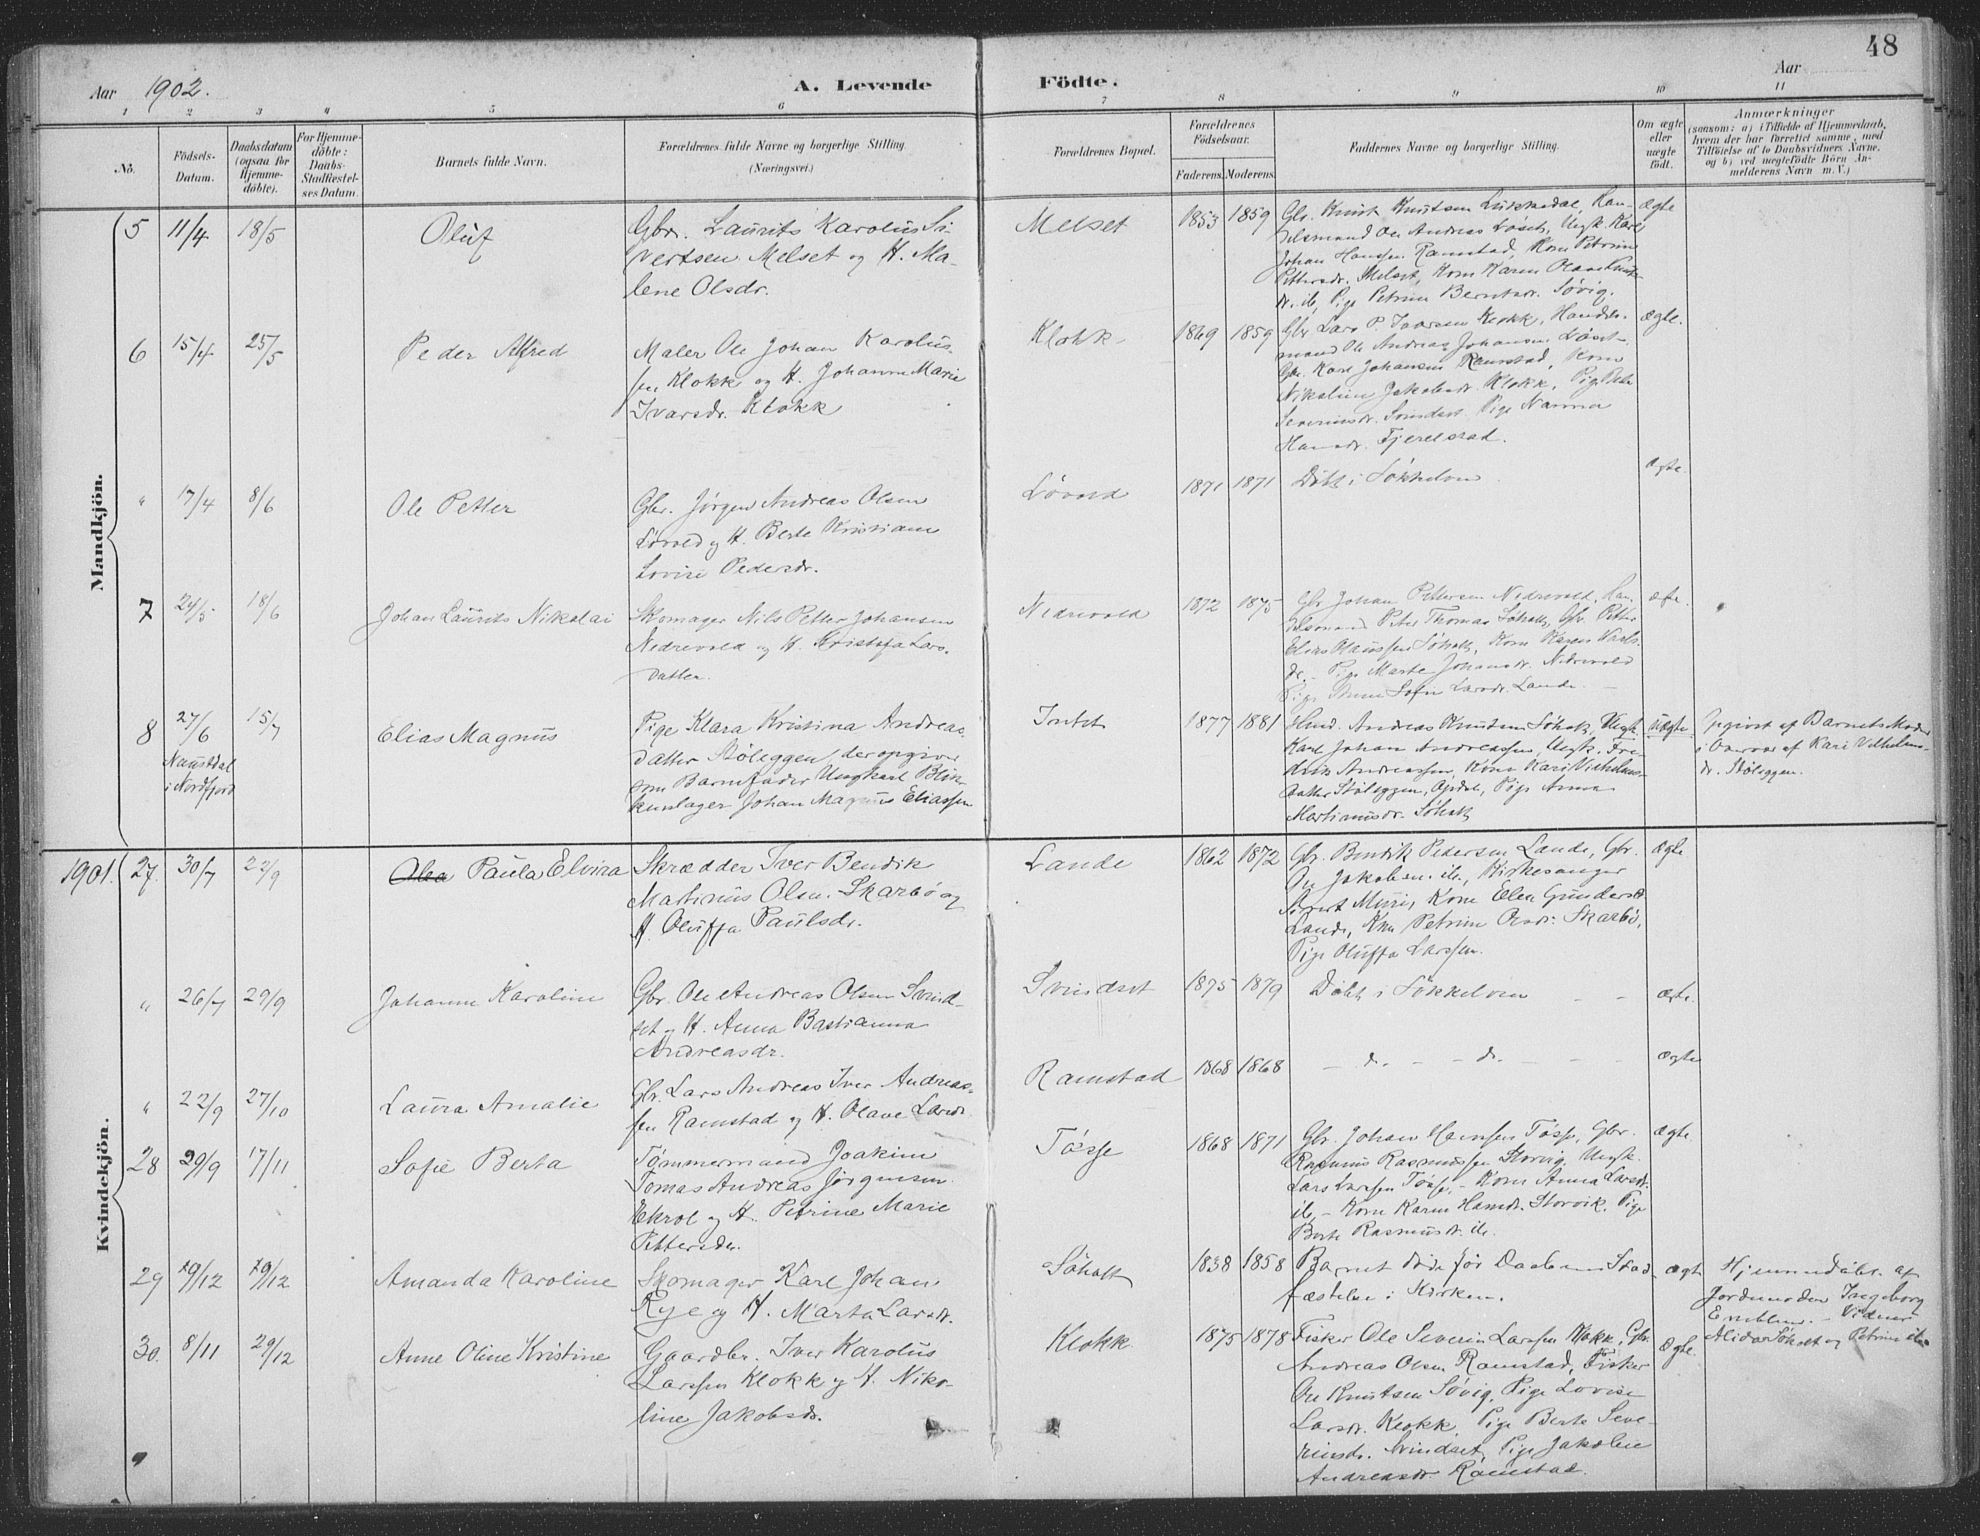 48
Aar 1902. A. Levende Födte. Aar
1 2 3 4 5 6 7 8 9 10 11
No.
Födsels-
Datum.
Daabsdatum
(ogsaa for
Hjemme-
döbte).
For Hjemme-
döbte:
Daabs-
Stadfæstel-
ses Datum.
Barnets fulde Navn.
Forældrenes fulde Navne og borgerlige Stilling
(Næringsvei.)
Forældrenes Bopæl.
Forældrenes
Födselsaar.
Faderens. Moderens.
Faddernes Navne og borgerlige Stilling.
Om ægte
eller
uægte
födt.
Anmærkninger
(saasom: a) i Tilfælde af Hjemmedaab,
hvem der har forrettet samme, med
Tilföielse af to Daabsvidners Navne,
og b) ved uægtefödte Börn An-
melderens Navn m. V.)
Mandkjön.
5 11/4 18/5 Oluf
Gbr. Laurits Karolus Si-
vertsen Melset og H. Ma-
lene Olsdr.
Melset 1853 1859
Gbr. Knut Knutsen Lukkedal, Han-
delsmand Ole Andreas Løset, Ungk. Karl
Johan Hansen Ramstad, Kone Petrine
Pettersdr. Melset, Kone Karen Olave Knuts-
dr. ib, Pige Petrine Berntsdr. Søvig.
ægte
6 15/4 25/5 Peder Alfred
Maler Ole Johan Karolus-
sen Klokk og H. Johanne Marie
Ivarsdr. Klokk
Klokk 1869 1859
Gbr Lars P. Ivarsen Klokk, Handels-
mand Ole Andreas Johansen Løset
Gbr. Karl Johansen Ramstad, Kone
Nikoline Jakobsdr. Klokk, Pige Berte
Severinsdr. Svindset Pige Nanna
Hansdr. Fjerelstad.
ægte.
" 17/4 8/6 Ole Petter
Gbr. Jørgen Andreas Olsen
Løvold og H. Berte Kristiane
Lovise Pedersdr.
Løvold 1871 1871 Døbt i Søkkelven ægte.
7 24/5 18/6 Johan Laurits Nikolai
Skomager Nils Petter Johansen
Nedrevold og H. Kristofa Lars-
datter.
Nedrevold 1872 1875
Gbr Johan Pettersen Nedrevold, Han-
delsmand Peter Thomas Søholt, Gbr. Petter
Elias Olaussen Søholt, Kone Karen Karls-
dr. - Pige Marte Johansdr. Nedrevold
Pige Anne Sofie Larsdr. Lande.
ægte.
8 27/6 15/7
Naustdal
i Nordfjord
Elias Magnus
Pige Klara Kristina Andreas-
datter Støleggen, der opgiver
som Barnefader Ungkarl Blik-
kenslager Johan Magnus Eliassen
Intet 1877 1881
Hmd. Andreas Knutsen Søholt, Ungk.
Karl Johan Andreassen, Ungk. Fre-
drik Andreassen, Kone Kari Vilhelms-
datter Støleggen, Opdal, Pige Anna
Martiniusdr. Søholt
uægte.
Opgivet af Barnets Moder
i Overvær af Kari Vilhelms-
dr. Støleggen.
Kvindekjön.
1901. 27. 30/7 22/9 Olea Paula Elvira
Skrædder Iver Bendik
Martinus Olsen Skarbø og
H. Oluffa Paulsdr.
Lande 1862 1872
Gbr. Bendik Pedersen Lande, Gbr.
Ole Jakobsen ib., Kirkesanger
Sivert Muri, Kone Elen Gundersdr
Lande, Kone Petrine Olsdr. Skarbø,
Pige Oluffa Larssen.
ægte
" 26/7 29/9 Johanne Karoline
Gbr. Ole Andreas Olsen Svind-
set og H. Anna Bastianna
Andreasdr.
Svindset 1875 1879 Døbt i Søkkelven - - ægte.
" 22/9 27/10 Laura Amalie
Gbr. Lars Andreas Iver Andreas-
sen Ramstad og H. Olave Larsdr.
Ramstad 1868 1868 - d. - - d. - - - ægte
28 29/9 17/11 Sofie Berta
Tømmermand Joakim
Tomas Andreas Jørgensen
Ekrol og H. Petrine Marie
Pettersdr.
Tøsse 1868 1871
Gbr. Johan Hansen Tøsse, Gbr.
Rasmus Rasmussen Storvig, Ungk.
Lars Larsen Tøsse, - Kone Anna Larsdr.
ib, - Kone Karen Hansdr. Storvik, Pige
Berte Rasmusdr. ib.
ægte.
29 19/12 19/12 Amanda Karoline
Skomager Karl Johan
Rye og H. Marta Larsdr.
Søholt 1838 1858
Barnet døde før Daabens Stad-
fæstelse i Kirken.
ægte
Hjemmedøbt af
Jordmoderen Ingeborg
Emblem. - Vidner
Alida Søholt og Petrine ib.
30. 8/11 29/12 Anne Oline Kristine
Gaardbr. Iver Karolus
Larssen Klokk og H. Niko-
line Jakobsdr.
Klokk 1875 1878
Fisker Ole Severin Larssen Klokk, Gbr.
Andreas Olsen Ramstad, Fisker
Ole Knutsen Søvig, Pige Lovise
Larsdr. Klokk, Pige Berte Seve-
rinsdr. Svindset, Pige Jakobie
Andreasdr. Ramstad.
Ægte.